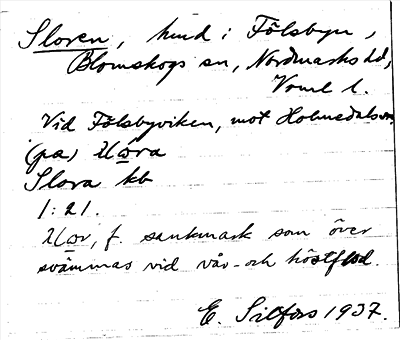 Sloren, hmd i Fölsbyn,
Blomskogs sn, Nordmarks hd,
Vrml l.
Vid Fölsbyviken, mot Holmedals sn
(på)
Slora kb
1:21.
f. sankmark som över
svämmas vid vår- och höstflod.
E. Silfors 1937.